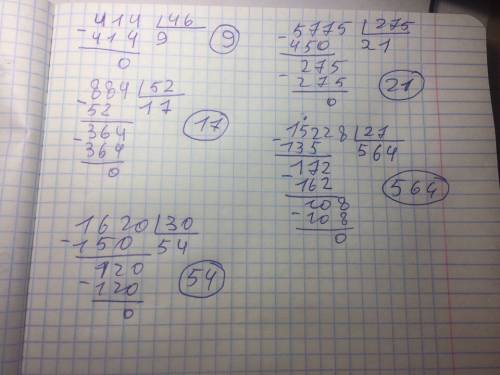 414 | 46
- 414 9 9
0
884 | 52
- 52 17 17
364
- 364
0
1620 | 30
- 150 54 54
120
- 120
0
5775 | 275
- 450 21
275
- 275 21
0
15228 | 27
- 135 564
172
- 162 564
108
- 108
0